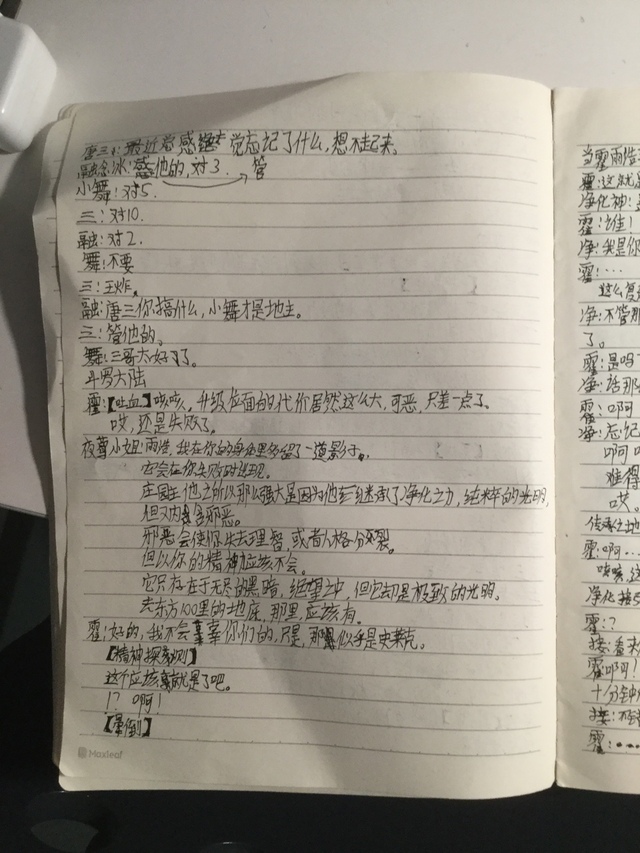 唐三：最近总感觉忘记了什么，想不起来。
融念冰：管他的，对3.
小舞：对5.
三：对10.
融：对2.
舞：不要
三：王炸。
融：唐三你搞什么，小舞才是地主。
三：管他的。
舞：三哥太好了。
斗罗大陆
霍：【吐血】咳咳，升级位面的代价居然这么大，可恶，只差一点了。
哎，还是失败了。
夜莺小姐：雨浩，我在你的身体里留了一道影子。
它会在你失败时出现。
他之所以那么强大是因为他继承了净化之力，纯粹的光明，
但又内含邪恶。
邪恶会使你失去理智，或者人格分裂。
但以你的精神应该不会。
它只存在于无尽的黑暗，绝望之中，但它却是极致的光明。
去东方100里的地底，那里应该有。
霍：好的，我不会辜你们的，只是，那似乎是史莱克。
【精神探测】
这个应该就是了吧。
！？啊！
【晕倒】
Maxleaf
当霍雨浩
霍：这就是
净化神：
霍：谁！
净：我是你
霍：…
这么复
净：不管那
了。
霍：是吗
净：话那
霍：啊
净：忘记
啊啊
难得
哎。
传承之地
霍：啊…
咳咳，这
净化接
霍：？
接：看来
霍：啊！
十分钟
接：不
霍：……